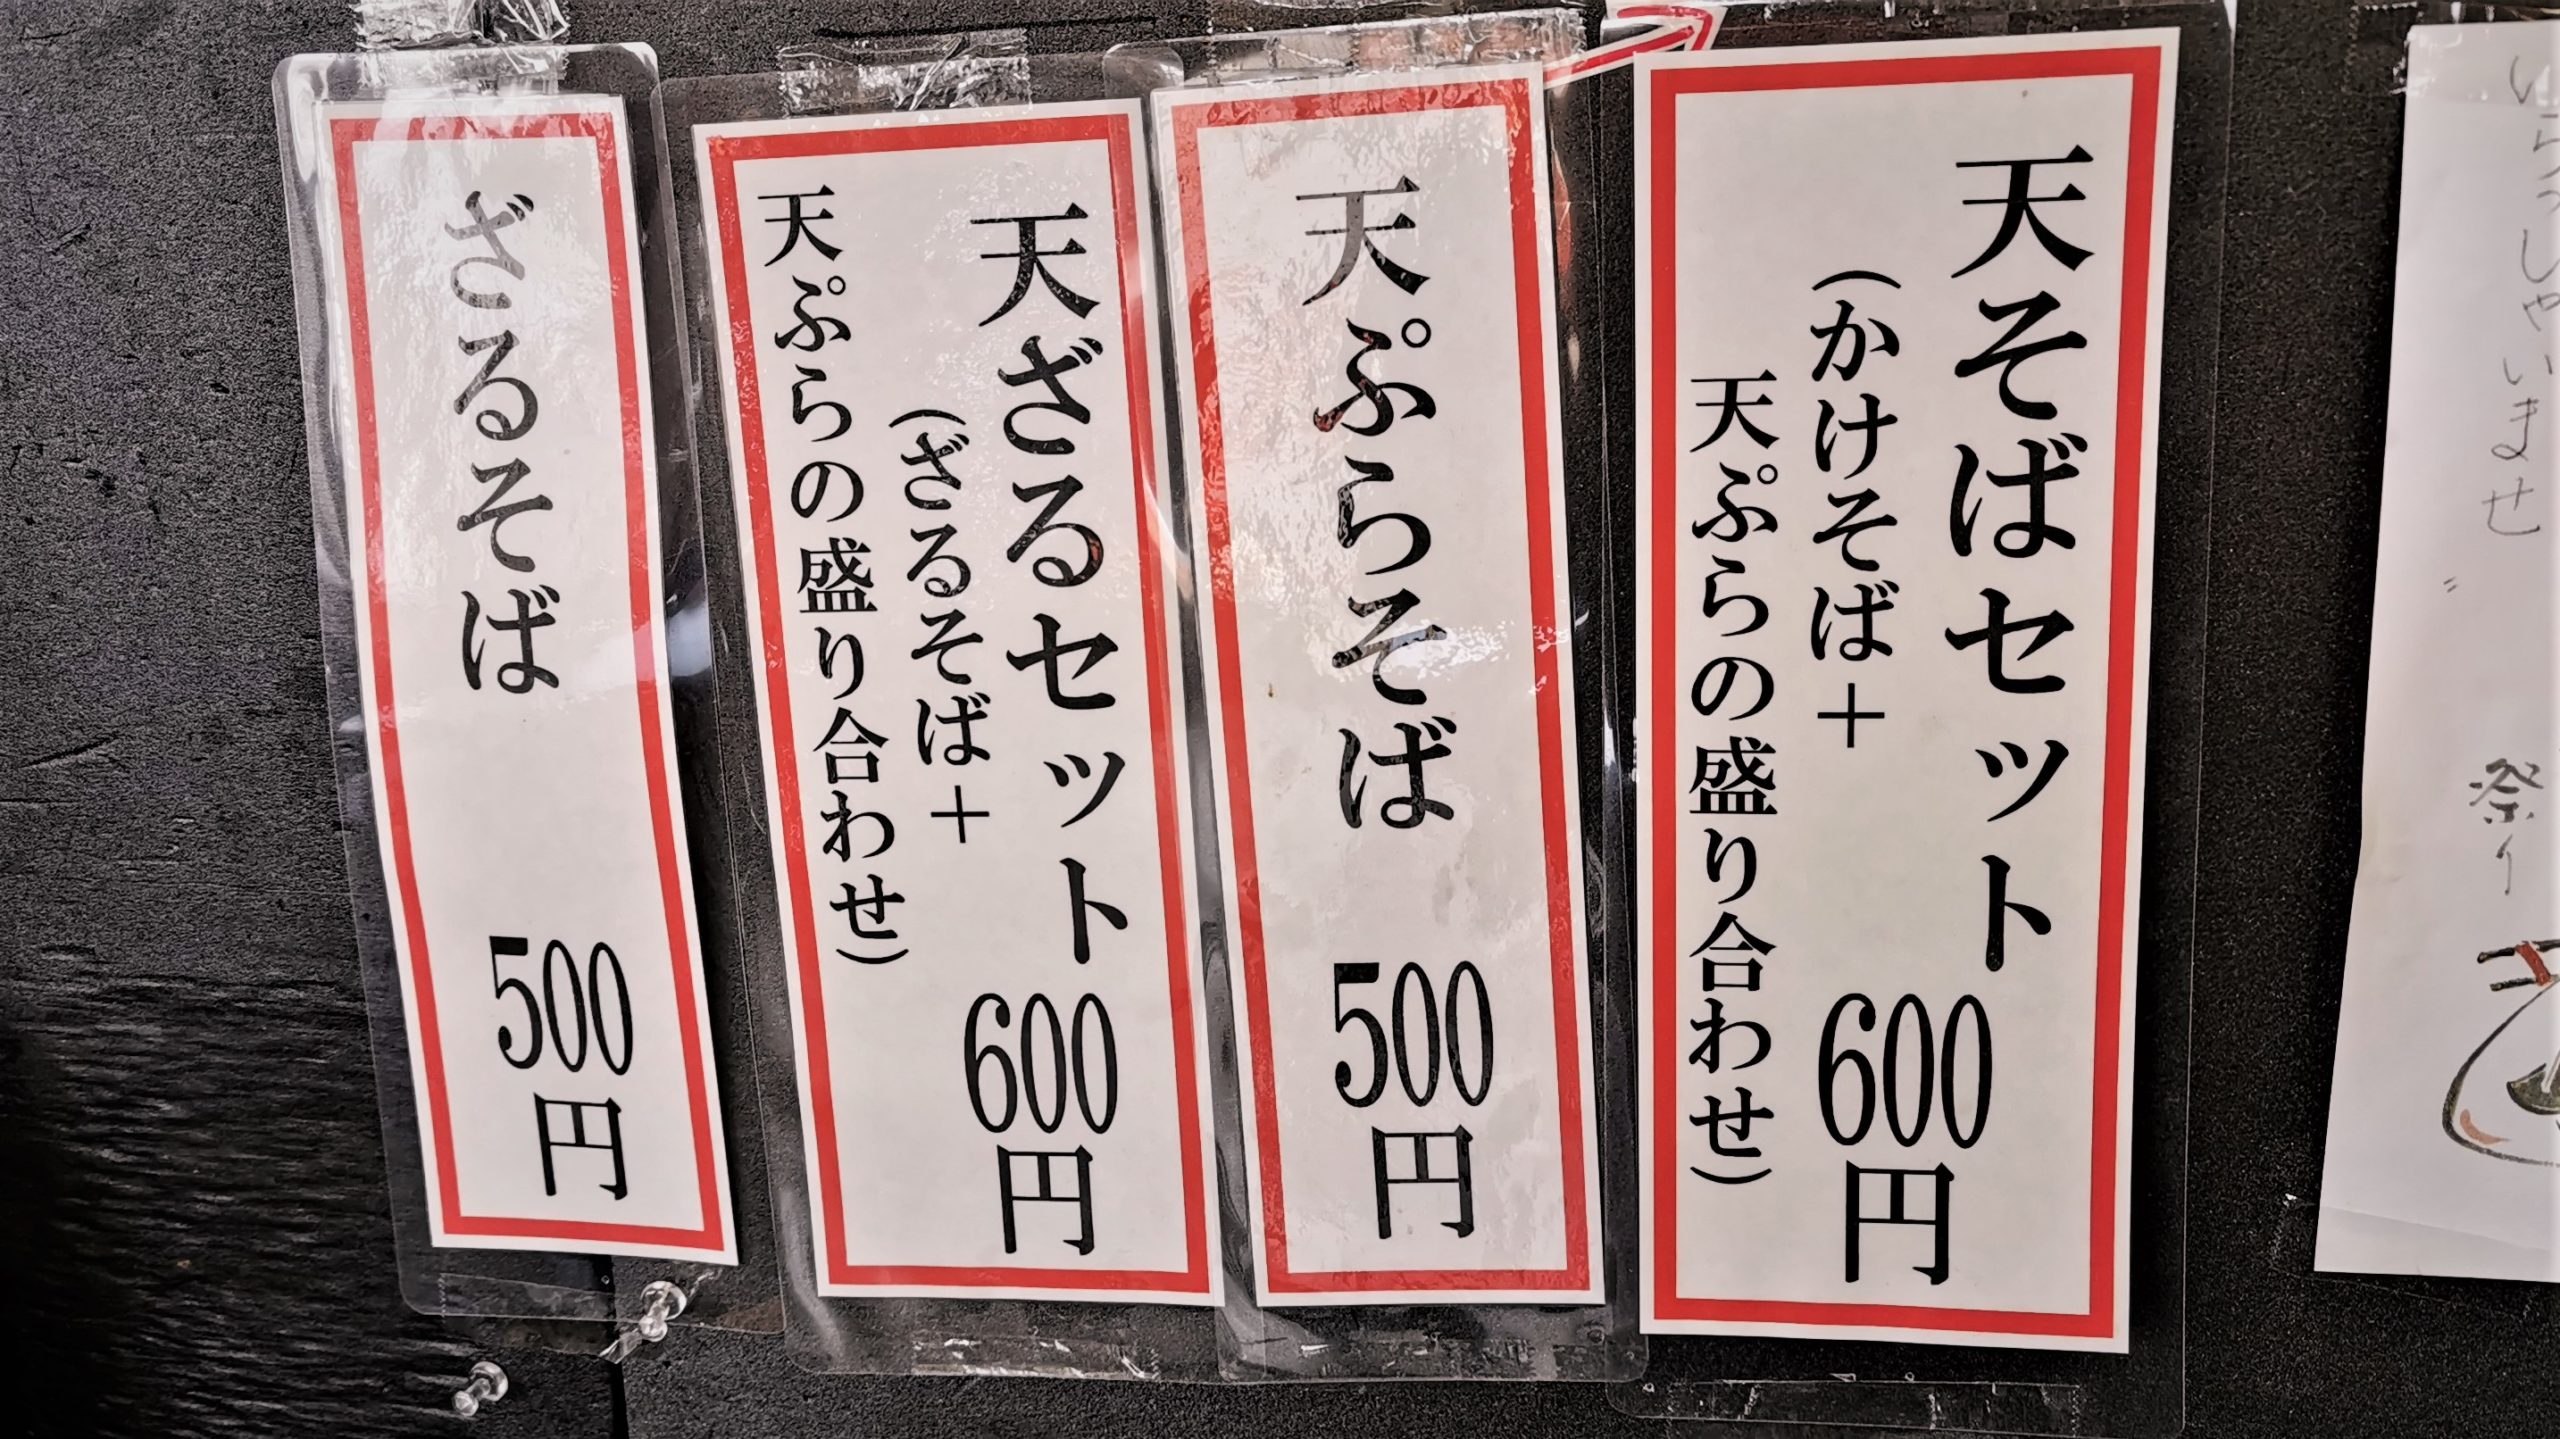 いらっしゃいませ
祭り
天そばセット 600円
(かけそば+
天ぷらの盛り合わせ)
天ぷらそば 500円
天ざるセット 600円
(ざるそば+
天ぷらの盛り合わせ)
ざるそば 500円